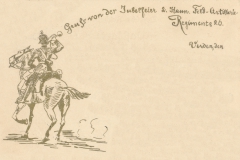 Gruß von der Jubelfeier 2. Hann. Feld-Artillerie
Regiments 26.
Verden, den